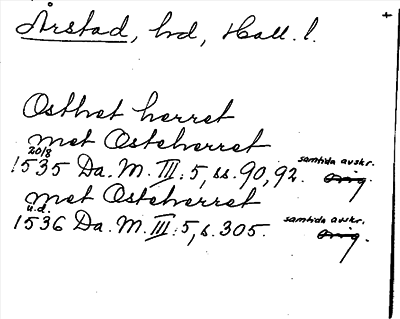 Årstad, hd, Hall. l.
Osthet herret
met Osteherret
20/8
1535 Da. M. III: 5, ss. 90, 92. samtida avskr. orig.
met Osteherret
u.d.
1536 Da. M. III: 5, s. 305. samtida avskr. orig.